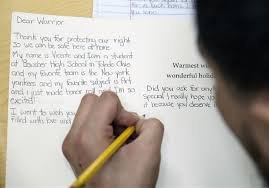 Dear Warrior
Thank you for protecting our right
so we can be safe here at home.
My name is Vicente and I am a student
at Bowsher High School in Toledo Ohio
and my favorite team is the New york
yankees and my favorite subject is Art
and I just made honor roll and I'm so
excited!
I went to wish you
filled with love and
Warmest
wonderful holid
Did you ask for any
Special I really hope yo
it because you deserve i